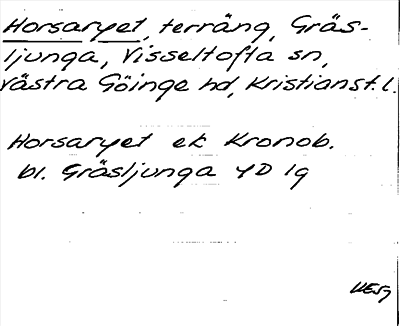 Horsaryet, terräng, Gräs-
ljunga, Visseltofta sn,
Västra Göinge hd, Kristianst. l.
Horsaryet ek Kronob.
bl. Gräsljunga 4D 1g